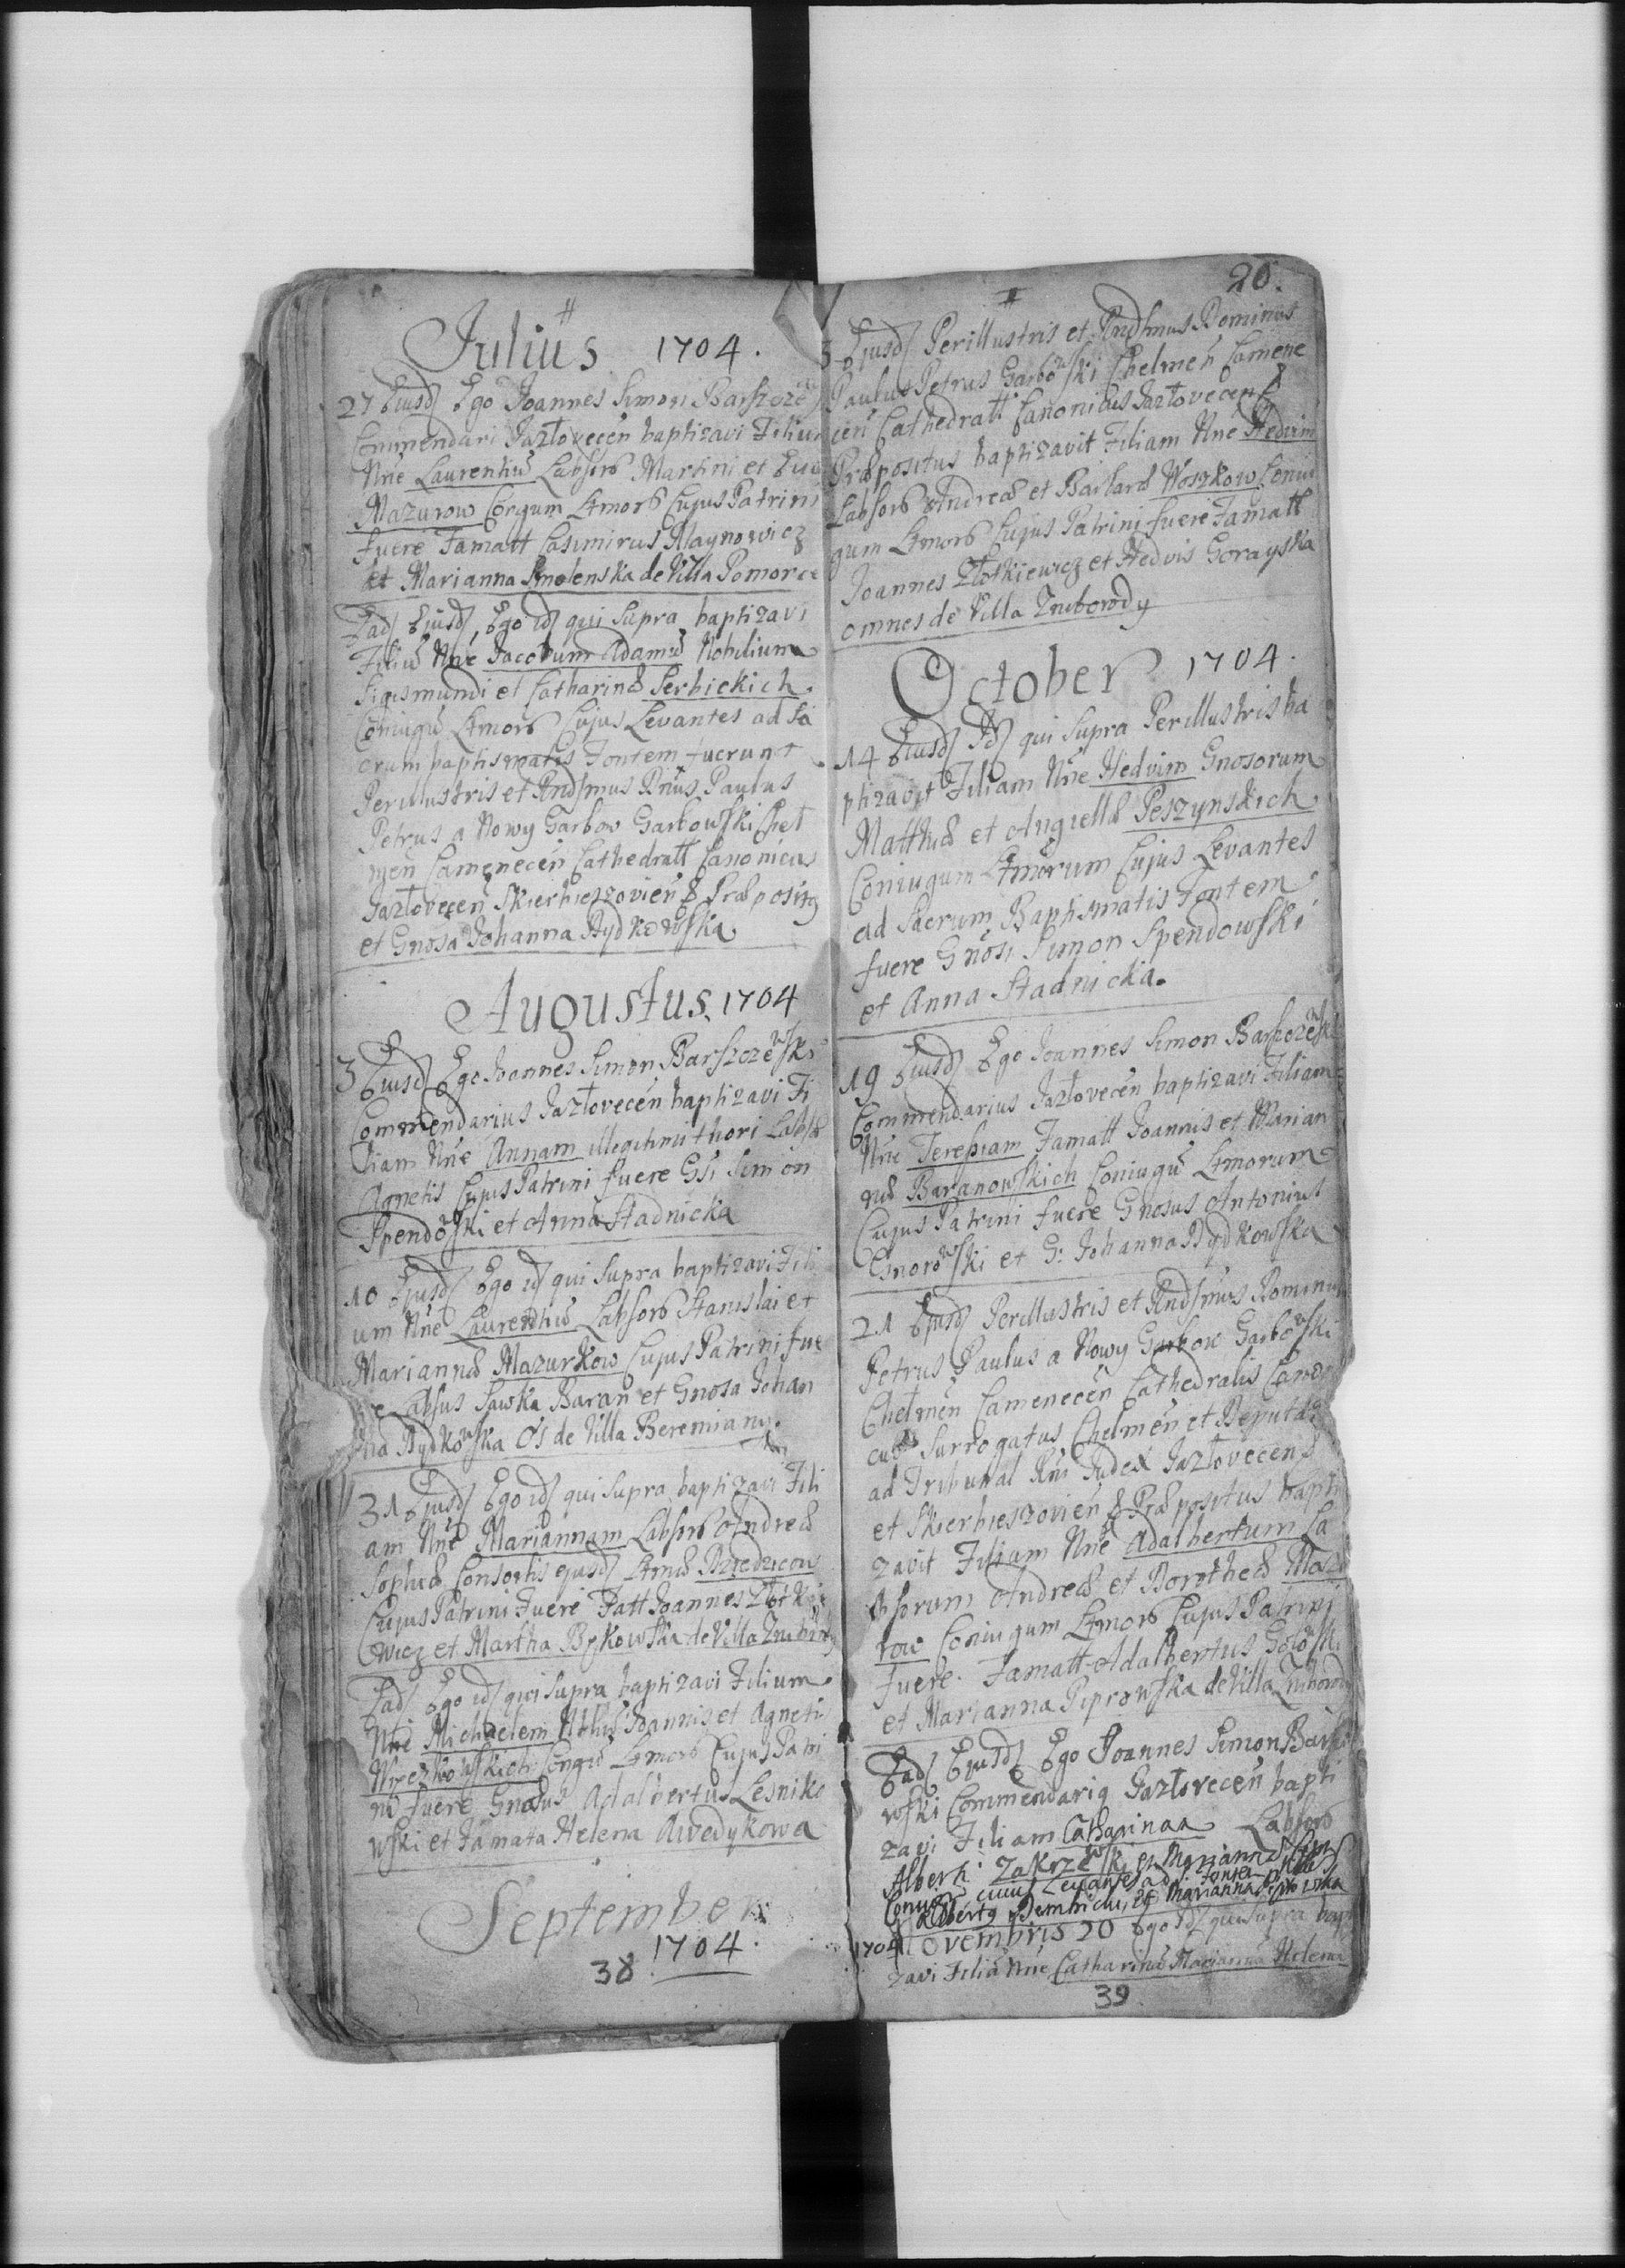 Julius 1704.
27 Eiusd Ego Joannes Simon Barszczew
Commendari Jazłovecen baptizavi Filium
Nne Laurentiu Labsorb Martini et Eva
Mazurow Congum Ltmorb Cujus Patrini
fuere Famatt Casimirus Maynowicz
et Marianna Smolenska de Villa Pomorce
Ead Ejusd Ego id qui supra baptizavi
Filiu Nne Jacobum Adamu Nobilium
Sigismundi et Catharinæ Serbickich.
Coniugu Ltmorb Cujus Levantes ad sa
crum baptismatis Fontem fuerunt
Perillustris et Rndsmus Dnus Paulus
Petrus a Nowy Garbow Garbowski Chel
men Camenecen Cathedratt Canonicus
Jazłovecen Skierbieszovien & Præposit9
et Gnosa Johanna Rydkowska
Augustus 1704
3 Eiusd Ego Joannes Simon Barszczewski
Commendarius Jazłovecen baptizavi Fi
liam Nne Annam illegitimi thori Labsæ
Agnetis Cujus Patrini fuere Gsi Simon
Spendowski et Anna Stadnicka
10 Ejusd Ego id qui supra baptizavi Fili
um Nne Laurentiu Labsorb Stanislai et
Mariannæ Mazurkow Cujus Patrini fue
re Labsus Sawka Baran et Gnosa Johan
na Rydkowska Os de Villa Beremiany.
31 Ejusd Ego id qui supra baptizavi Fili
am Nne Mariannam Labsorb Andreæ
Sophiæ Consortis ejusd Ltmæ
Cujus Patrini Fuere Fatt Joannes Złotkie
wicz et Martha Bykowska de Villa
Ead Ego id qui supra baptizavi Filium
Nne Michaelem Joannis et Agnetis
Congu Ltmorb Cujus Patri
ni fuere Gnosus Adalbertus Lesniko
wski et Famata Helena Awedykowa
September
1704.
38
20.
3 Ejusd Perillustris et Rndsmus Dominus
Paulus Petrus Garbowski Chelmen Camene
cen Cathedratt Canonicus Jazłovecen &
Præpositus baptizavit Filiam Nne Hedvim
Labsorb Andreæ et Barbaræ Woszkow Coniu
gum Ltmorb Cujus Patrini fuere Famatt
Joannes Złotkiewicz et Hedvis Gorayska
omnes de Villa Znibrody
October 1704.
14 Eiusd Id qui supra Perillustris ba
ptizavit Filiam Nne Hedvim Gnosorum
Matthiæ et Angiellæ Peszynskich
Coniugum Ltmorum Cujus Levantes
ad Sacrum Baptismatis Fontem
fuere Gnosi Simon Spendowski
et Anna Stadnicka.
19 Eiusd Ego Joannes Simon Barszczewski
Commendarius Jazłovecen baptizavi Filiam
Nne Teresiam Famatt Joannis et Marian
næ Baranowskich Coniugu Ltmorum
Cujus Patrini fuere Gnosus Antonius
Gnorowski et G: Johanna Rydkowska
21 Ejusd Perillustris et Rndsmus Dominus
Petrus Paulus a Nowy Garbow Garbowski
Chelmen Camenecen Cathedralis Canoni
cus Surrogatus Chelmen et Deputat9
ad Tribunal Rni Judex Jazłovecens
et Skierbieszovien & Præpositus bapti
zavit Filiam Nne Adalbertum La
bsorum Andreæ et Dorotheæ Mazu
row Coniugum Ltmorb Cujus Patrini
Fuere. Famatt Adalbertus Golowski
et Marianna Piprowska de Villa Znibrody
Ead Ejusd Ego Joannes Simon Barszcz
wski Commendari9 Jazłovecen bapti
zavi Filiam Catharinam Labsorb
Alberti Zakrzewski et Mariannæ
Coniug cuius Levantes ad fontem
Albert9 et Marianna
1704 Novembris 20 Ego Id qui supra bapti
zavi Filia Nne Catharina Marianna Helena
39